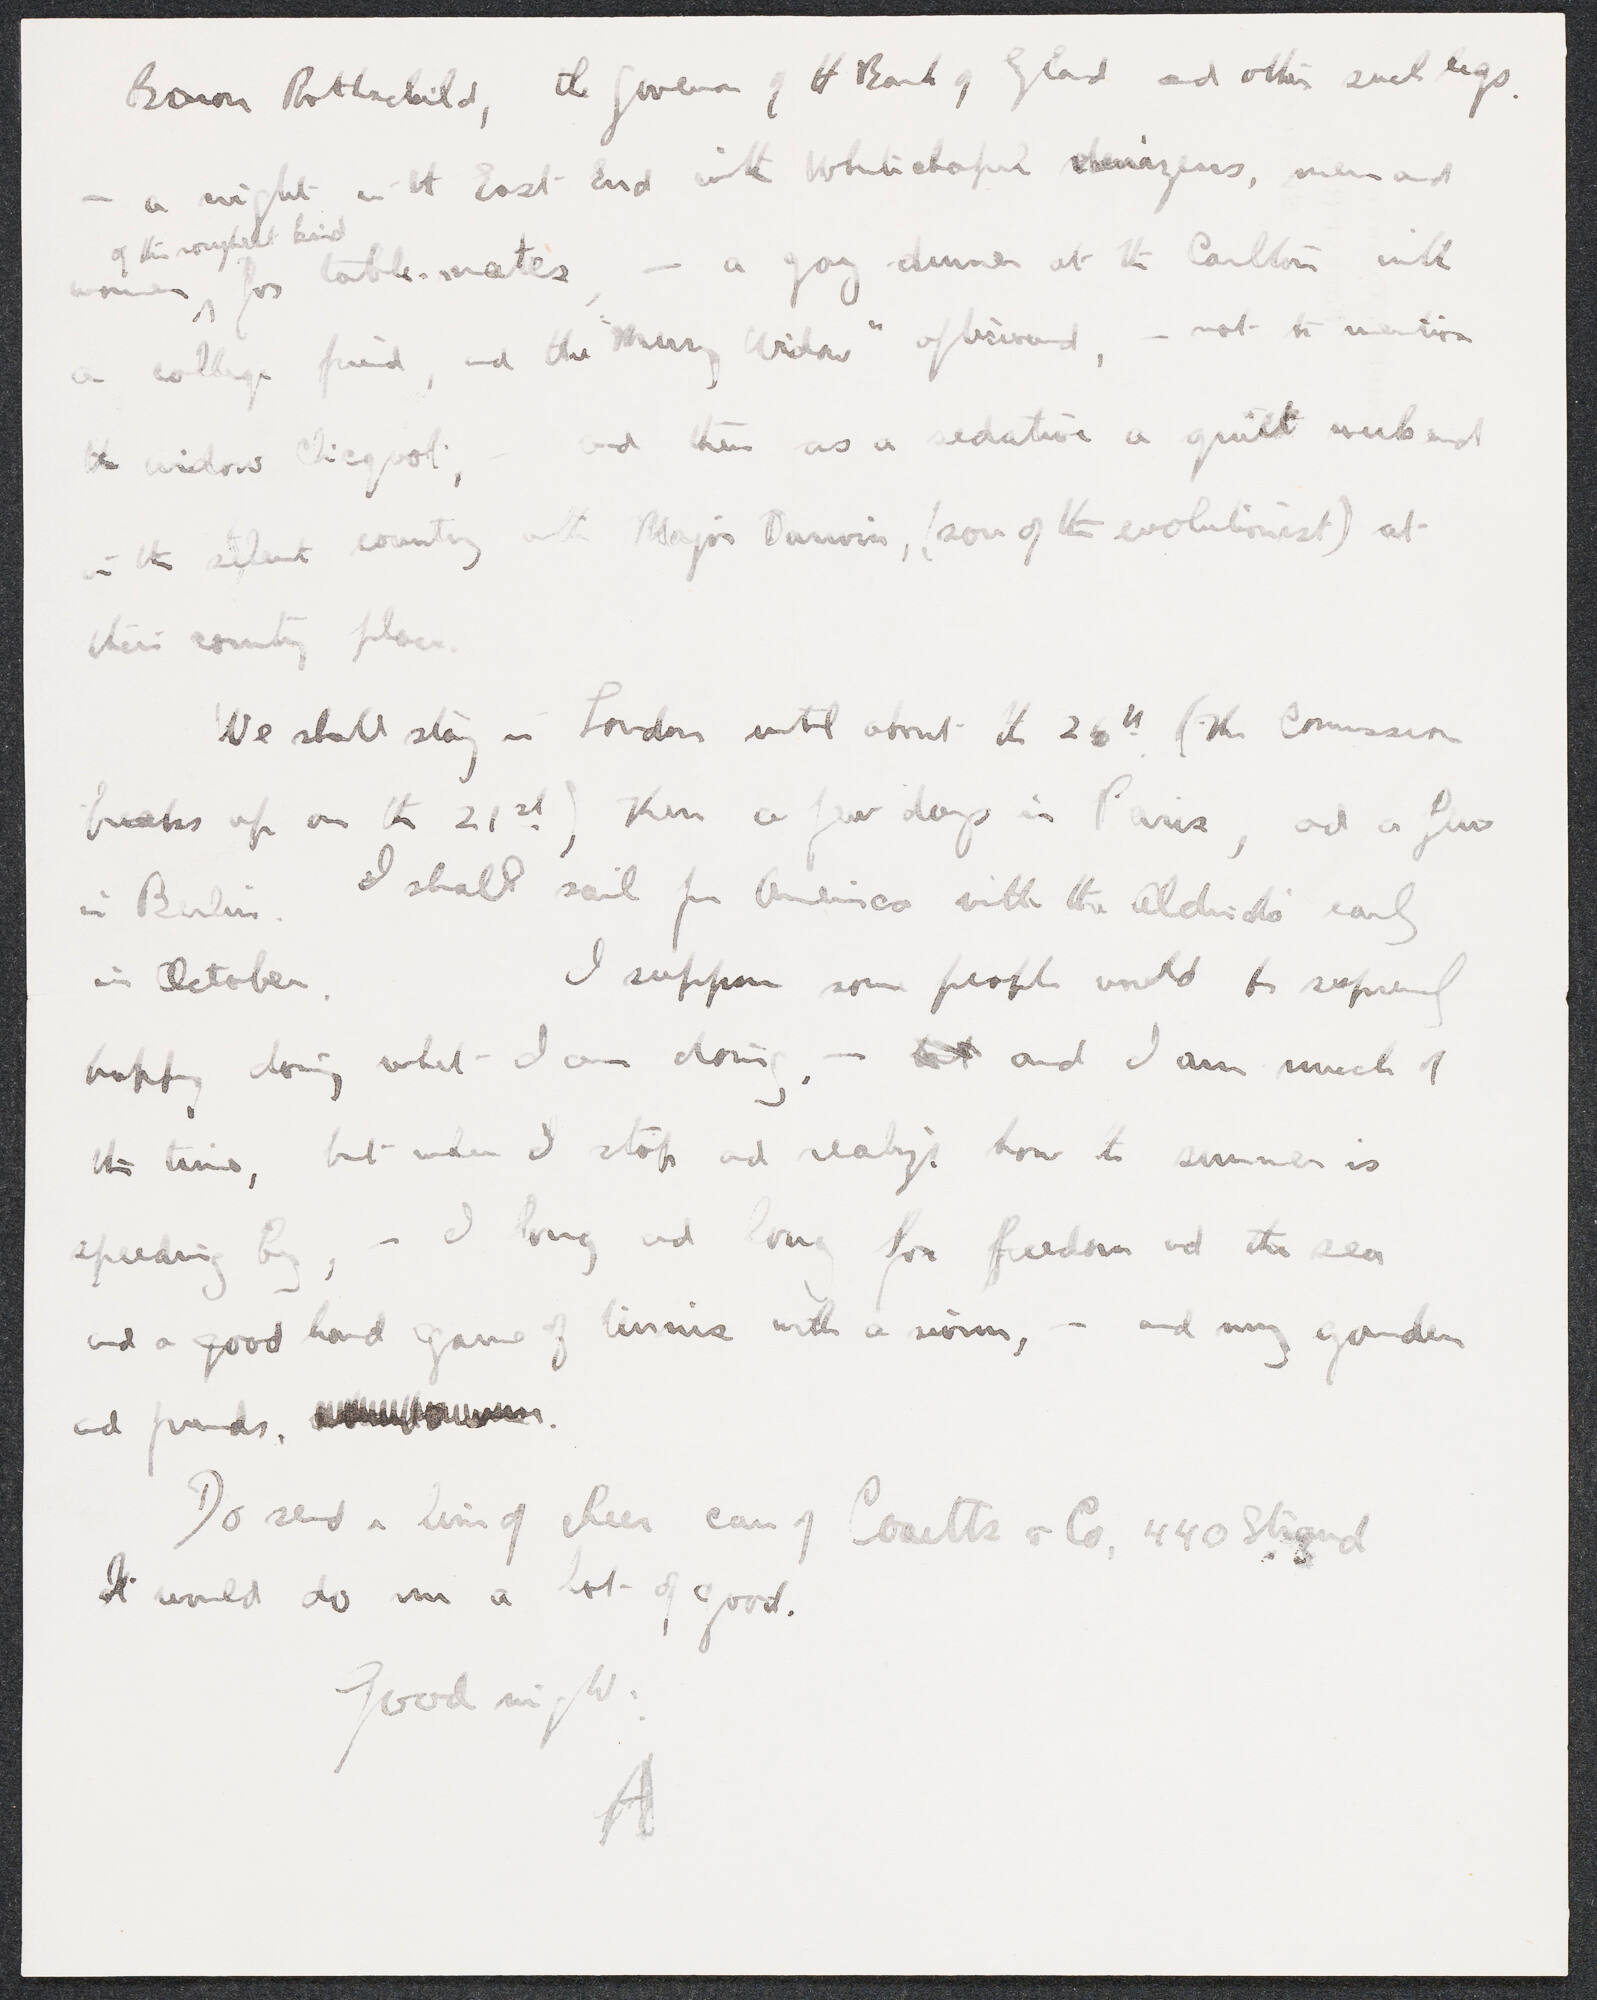 Baron Rothschild, the Governor of th Bank of England and other such legs.
– a night in th East End with Whitechapel denizens, men and
of the roughest kind
women for table-mates, – a gay dinner at th Carlton with
a college friend, and the "Merry Widow" afterward, – not to mention
the widow Clicquot, – and then as a sedative a quiet weekend
in the silent country with Major Darwin, (son of the evolutionist) at
their country place.
We shall stay in London until about th 26th (The Commission
breaks up on th 21st.) Then a few days in Paris, and a few
in Berlin. I shall sail for America with the Aldrichs early
in October. I suppose some people would be supremely
happy doing what I am doing, – and I am much of
the time, but when I stop and realize how th summer is
speeding by, – I long and long for freedom and the sea
and a good hard game of tennis with a swim, – and my garden
and friends.
Do send a line of cheer care of Coutts & Co, 440 Strand
It would do me a lot of good.
Good night.
A